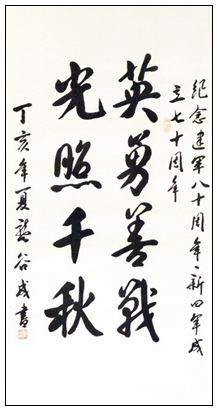 纪念建军八十周年、新四军成
立七十周年
英勇善戰
光照千秋
丁亥年夏龚谷成書